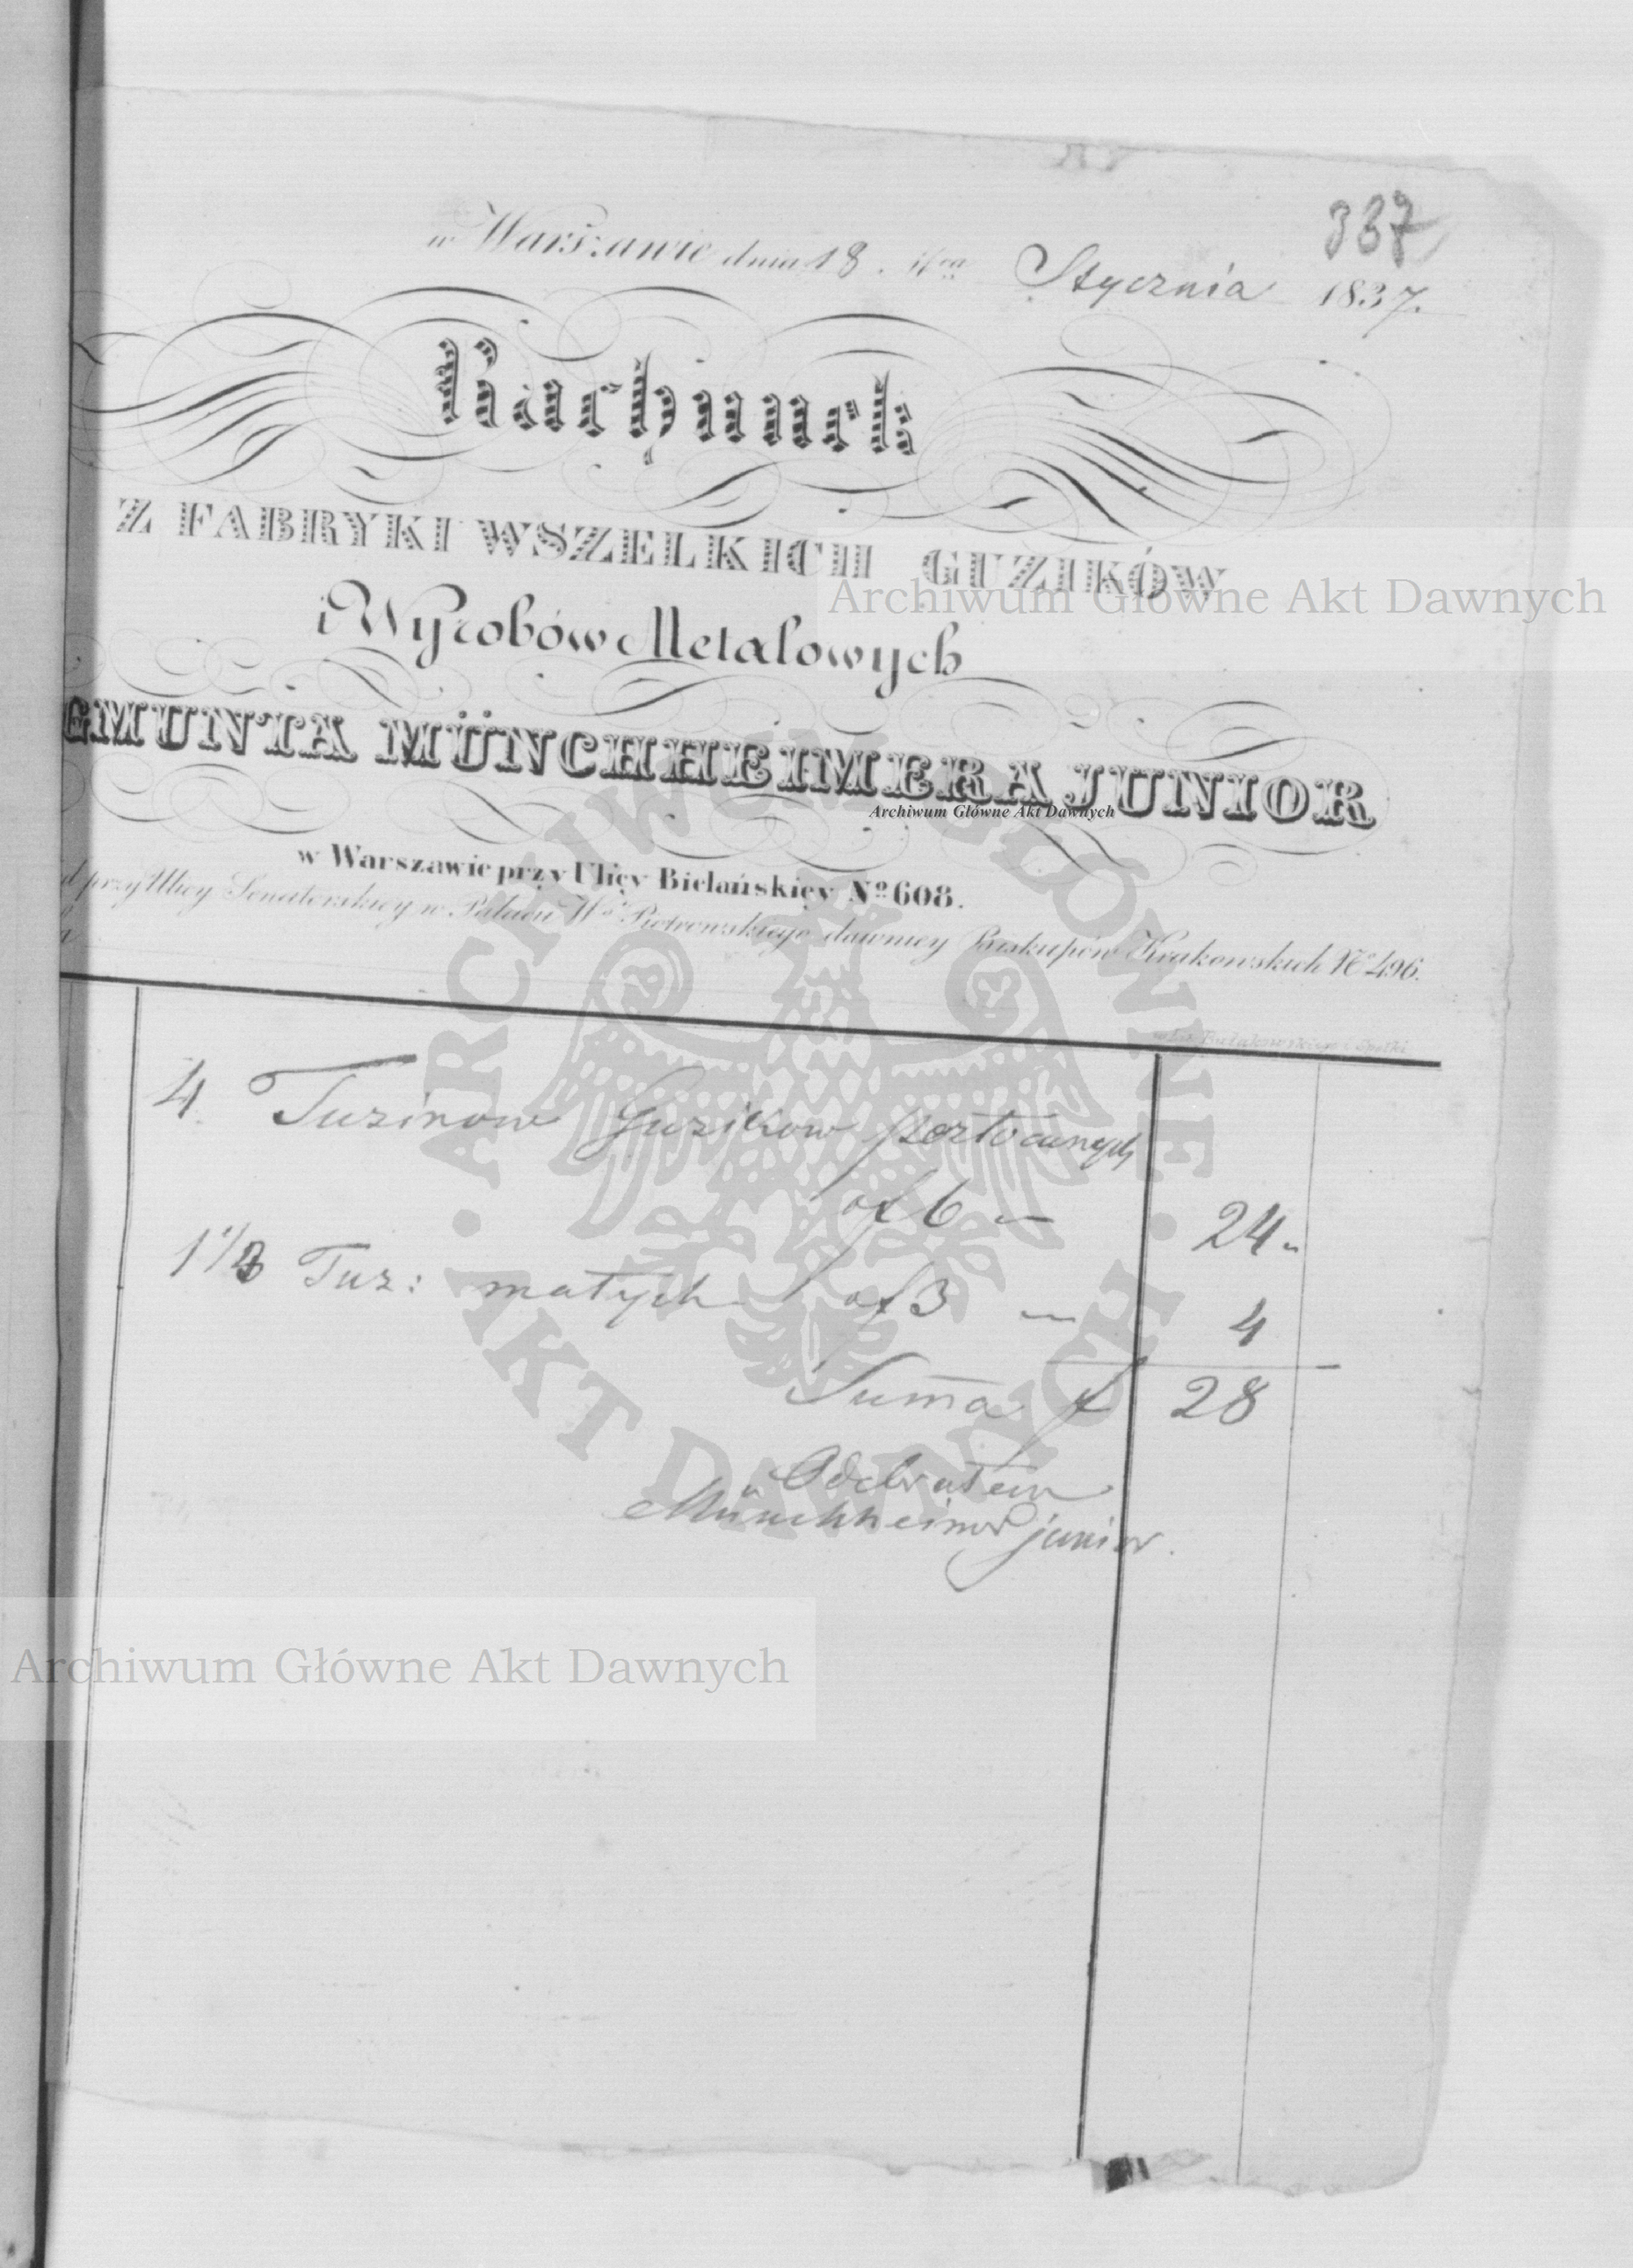 337
w Warszawie dnia 18. Stycznia 1837.
Rachunek
Z FABRYKI WSZELKICH GUZIKÓW
i Wyrobów Metalowych
GMUNTA MÜNCHHEIMERA JUNIOR
w Warszawie przy Ulicy Bielańskiey No 608.
d przy Ulicy Senatorskiey w Pałacu Wo Piotrowskiego dawniey Biskupów Krakowskich No 496.
4 Tuzinow Guzikow
af 6 — 24 „
1 1/3 Tuz: małych af 3 — 4
Suma f 28
Odebrałem
Münchheimer junior.
Archiwum Główne Akt Dawnych
Archiwum Główne Akt Dawnych
Archiwum Główne Akt Dawnych
ARCHIWUM GŁÓWNE · AKT DAWNYCH ·